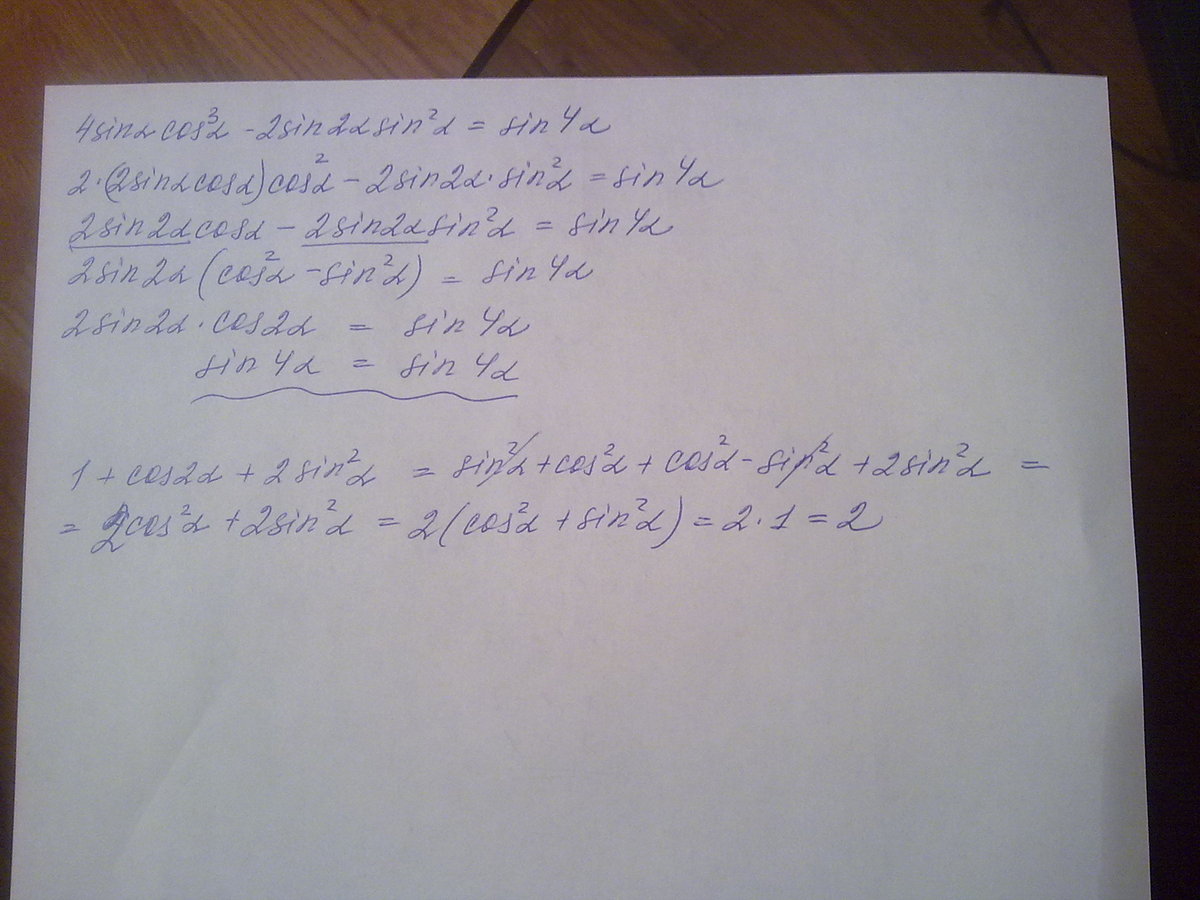 4sinα cos³α - 2sin2α sin²α = sin4α
2·(2sinα cosα)cos²α - 2sin2α·sin²α = sin4α
2sin2α cosα - 2sin2α sin²α = sin4α
2sin2α (cos²α - sin²α) = sin4α
2sin2α · cos2α = sin4α
sin4α = sin4α
1 + cos2α + 2sin²α = sin²α + cos²α + cos²α - sin²α + 2sin²α =
= 2cos²α + 2sin²α = 2(cos²α + sin²α) = 2·1 = 2